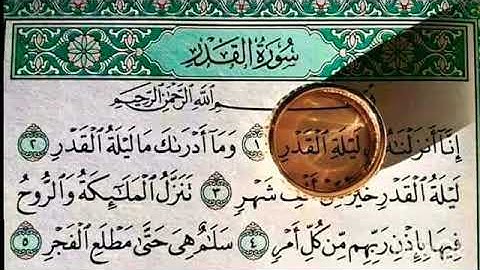 سُورَةُ القَدْرِ
بِسْمِ ٱللَّهِ ٱلرَّحْمَٰنِ ٱلرَّحِيمِ
إِنَّآ أَنزَلْنَٰهُ لَيْلَةِ ٱلْقَدْرِ ١ وَمَآ أَدْرَىٰكَ مَا لَيْلَةُ ٱلْقَدْرِ ٢
لَيْلَةُ ٱلْقَدْرِ خَيْرٌ مِّنْ أَلْفِ شَهْرٍ ٣ تَنَزَّلُ ٱلْمَلَٰٓئِكَةُ وَٱلرُّوحُ
فِيهَا بِإِذْنِ رَبِّهِم مِّن كُلِّ أَمْرٍ ٤ سَلَٰمٌ هِىَ حَتَّىٰ مَطْلَعِ ٱلْفَجْرِ ٥